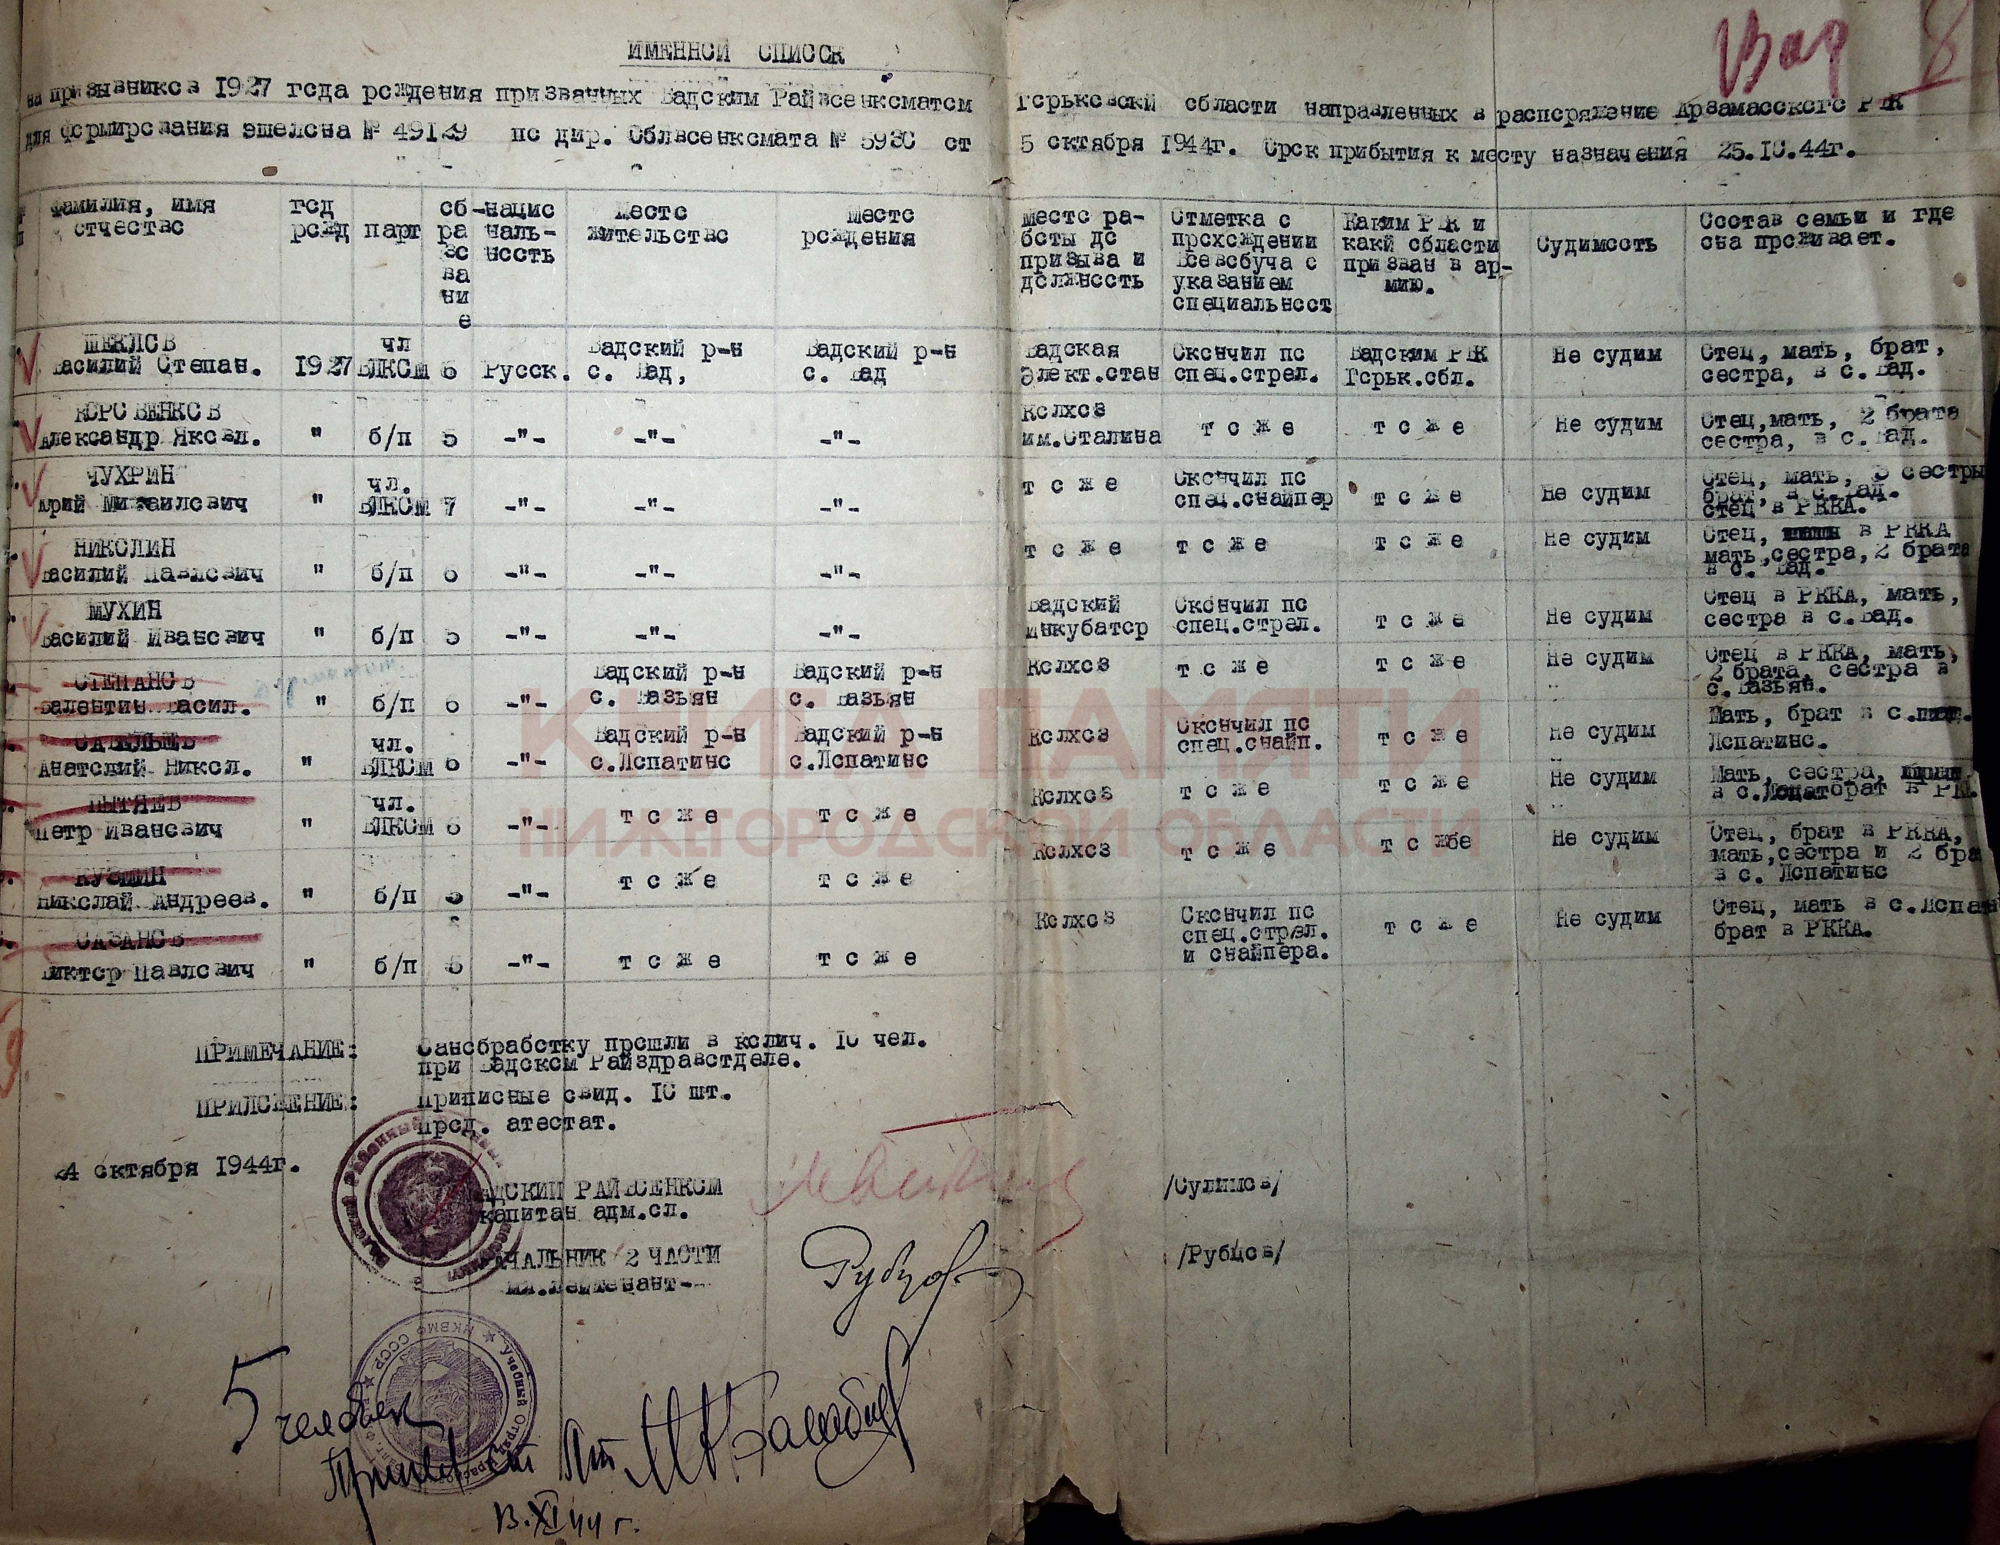 Вад 8
ИМЕННОЙ СПИСОК
на призывников 1927 года рождения призванных Вадским Райвоенкоматом Горьковскй области направленных в распоряжение Арзамасского РВК
для формирования эшелона № 49129 по дир. Облвоенкомата № 5930 от 5 октября 1944г. Срок прибытия к месту назначения 25.10.44г.
Фамилия, имя отчество | год рожд | парт | об-ра зо ва ни е | нацио наль-ность | Место жительство | Место рождения | Место ра-боты до призыва и должность | Отметка о прохождении Всевобуча с указанием специальност | Каким РВК и какй области призван в ар-мию. | Судимость | Состав семьи и где она проживает.
ШЕКЛОВ Василий Степан. | 1927 | чл ВЛКСМ | 6 | Русск. | Вадский р-н с. Вад, | Вадский р-н с. Вад | Вадская Элект.стан | Окончил по спец.стрел. | Вадским РВК Горьк.обл. | Не судим | Отец, мать, брат, сестра, в с.Вад.
КОРОВЕНКОВ Александр Яковл. | " | б/п | 5 | -"- | -"- | -"- | Колхоз им.Сталина | т о ж е | т о ж е | Не судим | Отец,мать, 2 брата сестра, в с.Вад.
ЧУХРИН Юрий Михаилович | " | чл. ВЛКСМ | 7 | -"- | -"- | -"- | т о ж е | Окончил по спец.снайпер | т о ж е | Не судим | Отец, мать, 3 сестры брат, в с.Вад. отец в РККА.
НИКОЛИН Василий Павлович | " | б/п | 6 | -"- | -"- | -"- | т о ж е | т о ж е | т о ж е | Не судим | Отец, в РККА мать,сестра,2 брата в с. Вад.
МУХИН Василий Иванович | " | б/п | 5 | -"- | -"- | -"- | Вадский Инкубатор | Окончил по спец.стрел. | т о ж е | Не судим | Отец в РККА, мать, сестра в с.Вад.
СТЕПАНОВ Валентин Васил. | " | б/п | 6 | -"- | Вадский р-н с. Вазьян | Вадский р-н с. Вазьян | Колхоз | т о ж е | т о ж е | Не судим | Отец в РККА, мать, 2 брата, сестра в с.Вазьян.
САВЕЛЬЕВ Анатолий Никол. | " | чл. ВЛКСМ | 6 | -"- | Вадский р-н с.Лопатино | Вадский р-н с.Лопатино | Колхоз | Окончил по спец.снайп. | т о ж е | Не судим | Мать, брат в с. Лопатино.
ПЫТЯЕВ Петр Иванович | " | чл. ВЛКСМ | 6 | -"- | т о ж е | т о ж е | Колхоз | т о ж е | т о ж е | Не судим | Мать, сестра, в с.Лопат брат в РК.
КУЗМИН Николай Андреев. | " | б/п | 5 | -"- | т о ж е | т о ж е | Колхоз | т о ж е | т о жбе | Не судим | Отец, брат в РККА, мать,сестра и 2 бра в с. Лопатино
САЗАНОВ Виктор Павлович | " | б/п | 5 | -"- | т о ж е | т о ж е | Колхоз | Окончил по спец.стрел. и снайпера. | т о ж е | Не судим | Отец, мать в с.Лопат брат в РККА.
КНИГА ПАМЯТИ
НИЖЕГОРОДСКОЙ ОБЛАСТИ
ПРИМЕЧАНИЕ: Санобработку прошли в колич. 10 чел.
при Вадском Райздравотделе.
ПРИЛОЖЕНИЕ: Приписные свид. 10 шт.
Прод. атестат.
24 октября 1944г.
ВАДСКИЙ РАЙВОЕНКОМ
капитан адм.сл. /Сулимов/
НАЧАЛЬНИК 2 ЧАСТИ
мл.лейтенант- Рубцов /Рубцов/
Учебный Отряд НКВМФ СССР
5 человек
Принял
13.XI 44 г.